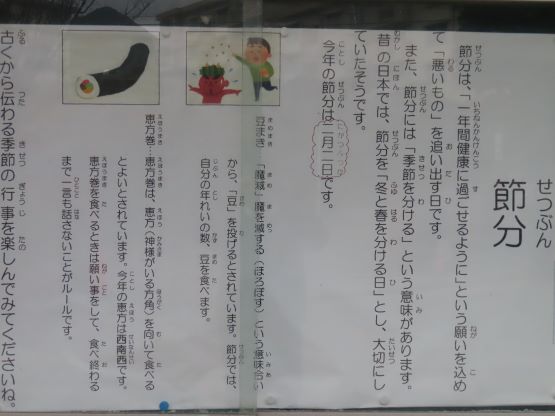 節分
節分は、「一年間健康に過ごせるように」という願いを込め
て「悪いもの」を追い出す日です。
また、節分には「季節を分ける」という意味があります。
昔の日本では、節分を「冬と春を分ける日」とし、大切にし
ていたそうです。
今年の節分は二月二日です。
豆まき…「魔滅」魔を滅する(ほろぼす)という意味合い
から、「豆」を投げるとされています。節分では、
自分の年れいの数、豆を食べます。
恵方巻…恵方巻は、恵方(神様がいる方角)を向いて食べる
とよいとされています。今年の恵方は西南西です。
恵方巻を食べるときは願い事をして、食べ終わる
まで一言も話さないことがルールです。
古くから伝わる季節の行事を楽しんでみてくださいね。